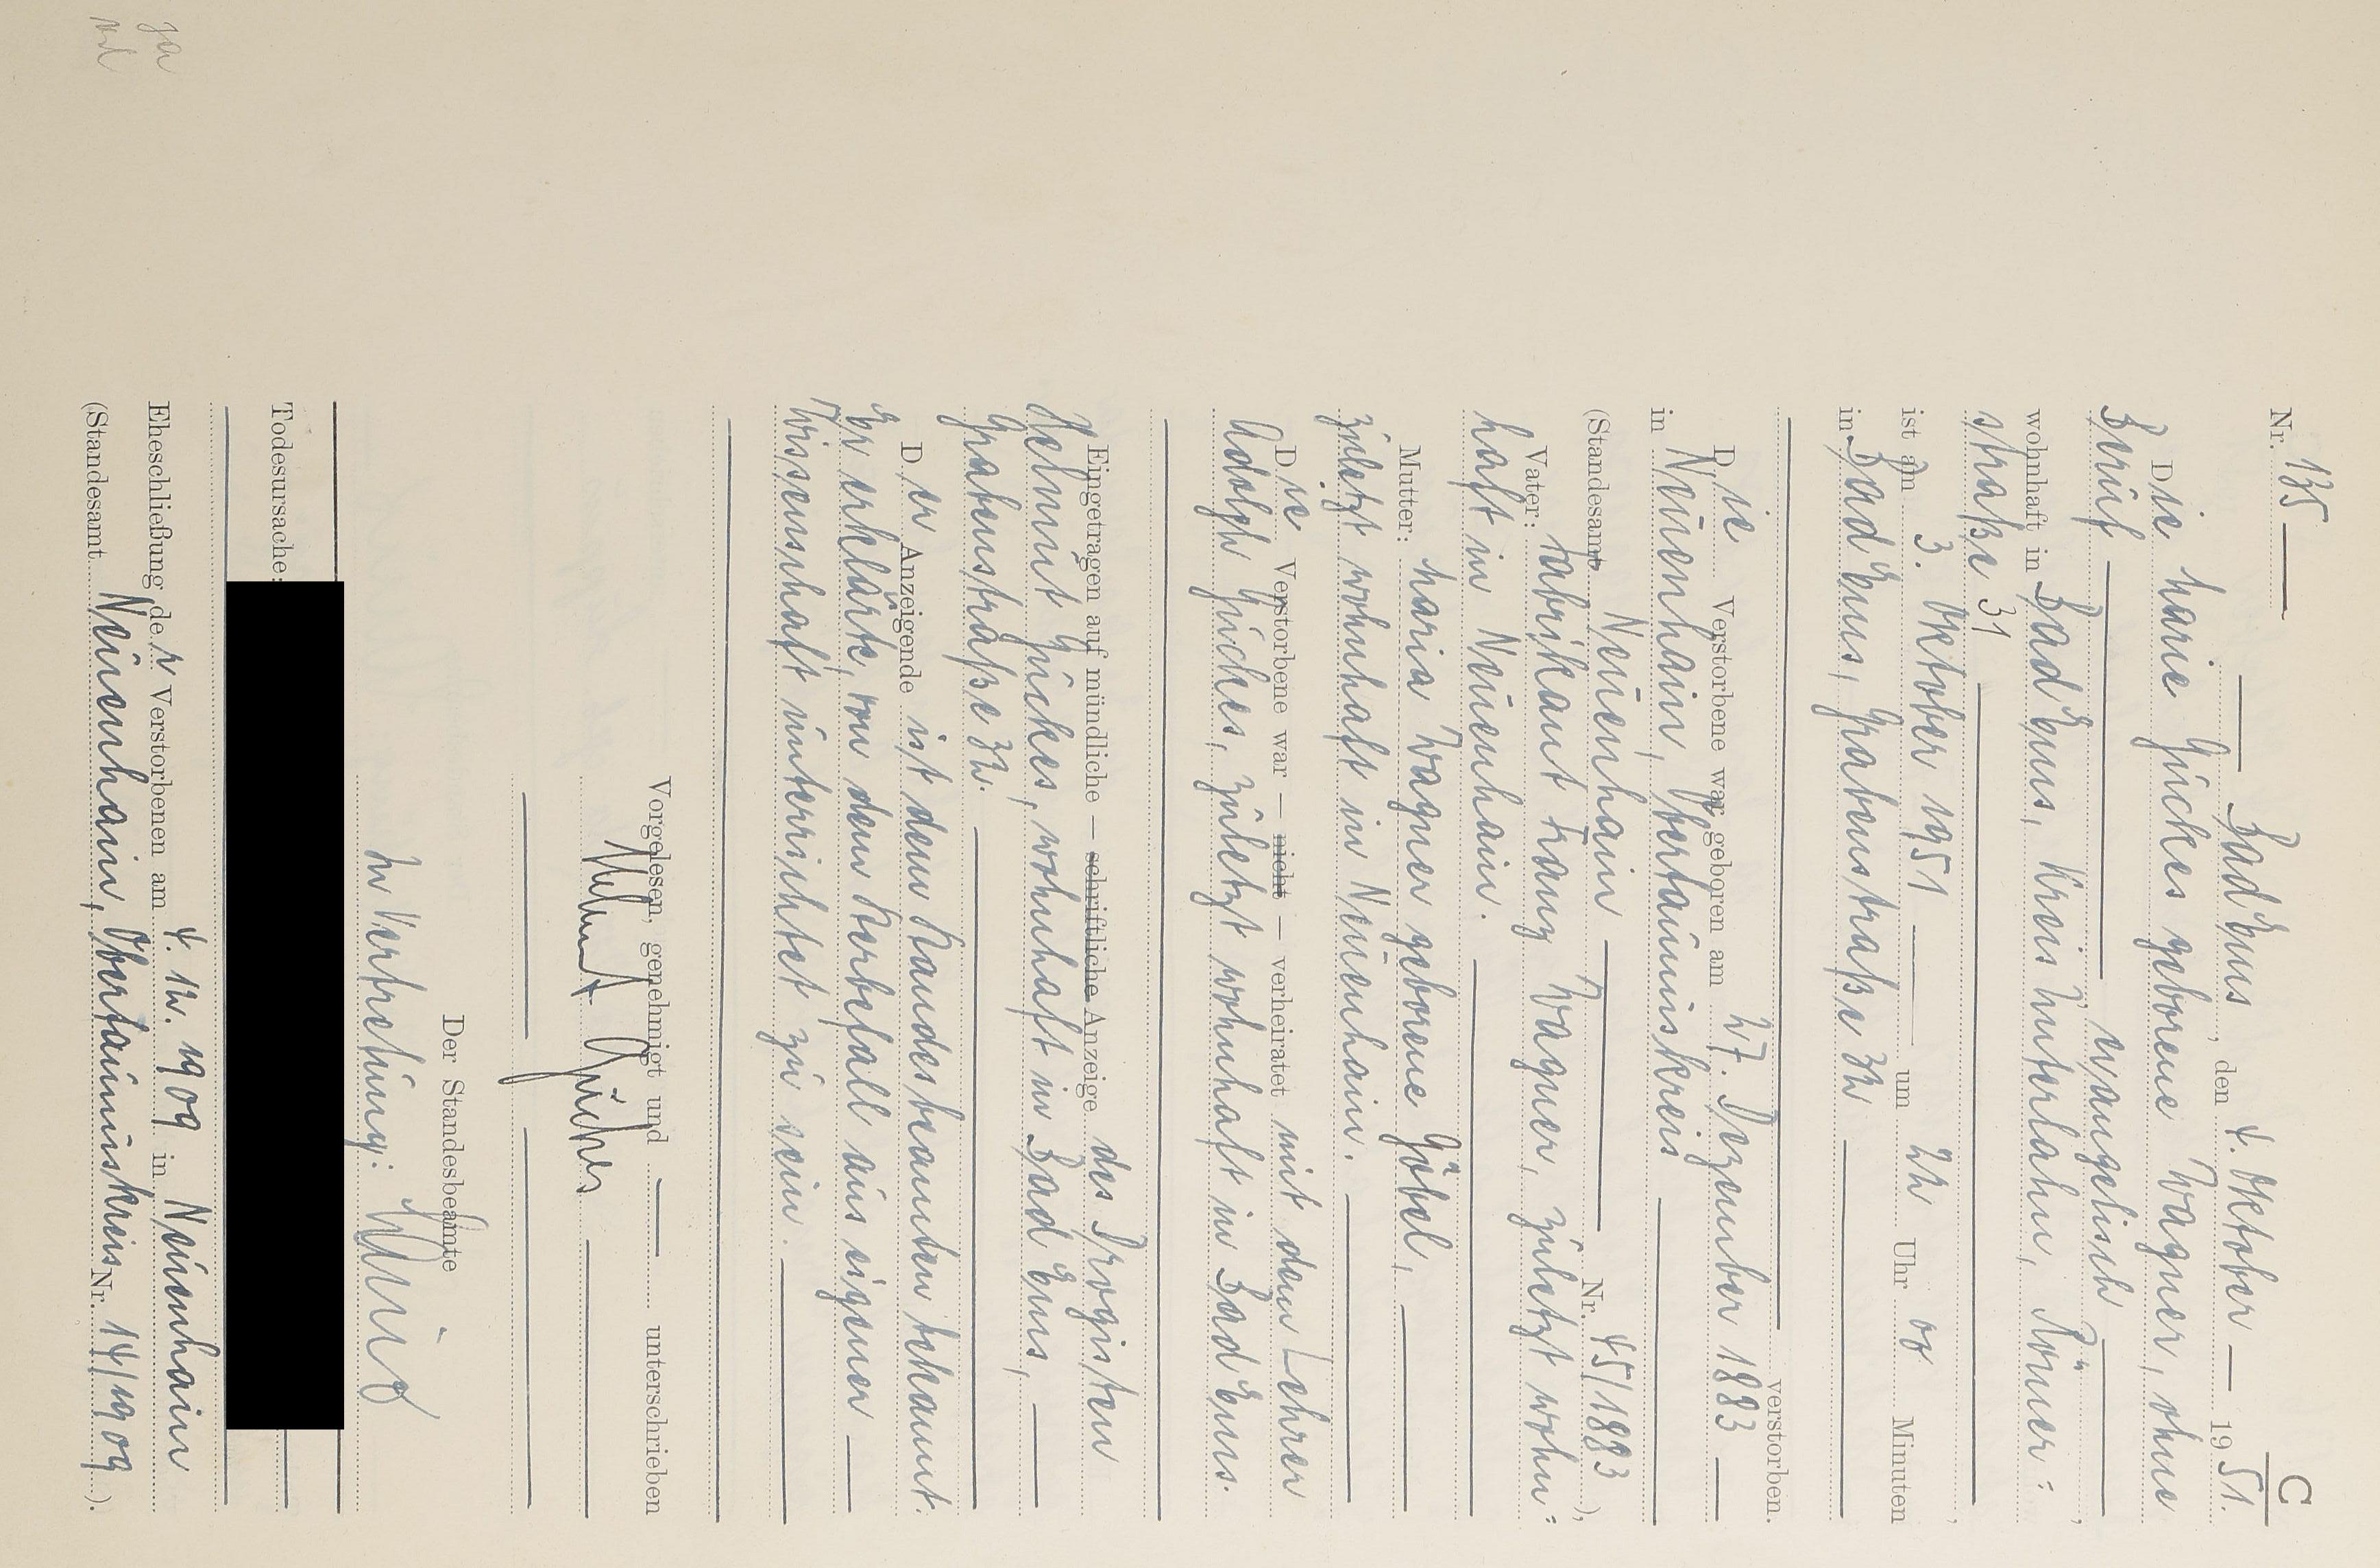 C
Nr. 135
Bad Ems, den 4. Oktober 1951.
Die Marie Gückes geborene Wagner, ohne
Beruf evangelisch,
wohnhaft in Bad Ems, Kreis Unterlahn, Römer=
straße 31,
ist am 3. Oktober 1951 um 22 Uhr 00 Minuten
in Bad Ems, Grabenstraße 32
verstorben.
Die Verstorbene war geboren am 27. Dezember 1883
in Neuenhain, Obertaunuskreis
(Standesamt Neuenhain Nr. 45/1883),
Vater: Fabrikant Franz Wagner, zuletzt wohn=
haft in Neuenhain.
Mutter: Maria Wagner geborene Göbel,
zuletzt wohnhaft in Neuenhain.
Die Verstorbene war — nicht — verheiratet mit dem Lehrer
Adolph Gückes, zuletzt wohnhaft in Bad Ems.
Eingetragen auf mündliche — schriftliche Anzeige des Drogisten
Helmut Gückes, wohnhaft in Bad Ems,
Grabenstraße 32.
Der Anzeigende ist dem Standesbeamten bekannt.
Er erklärte, von dem Sterbefall aus eigener
Wissenschaft unterrichtet zu sein.
Vorgelesen, genehmigt und unterschrieben
Helmut Gückes
Der Standesbeamte
In Vertretung:
Todesursache:
Eheschließung der Verstorbenen am 4. 12. 1909 in Neuenhain
(Standesamt Neuenhain, Obertaunuskreis Nr. 14/1909).